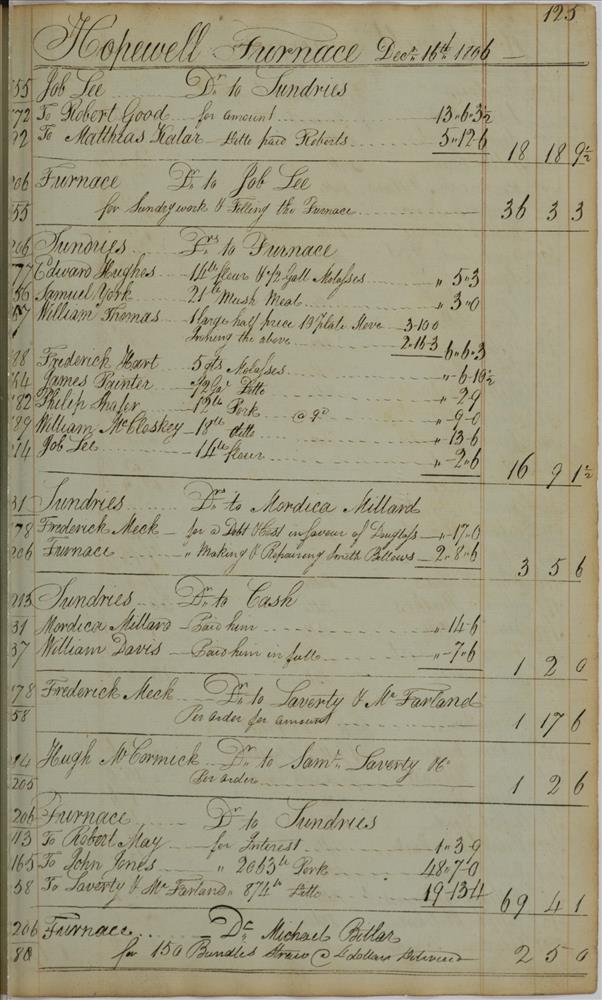 125
Hopewell Furnace Decr. 16th 1806
55 Job Lee Dr. to Sundries
72 To Robert Good for amount 13,,6,,3½
To Matthias Kalar Ditto paid Roberts 5,,12,,6 18 18 9½
206 Furnace Dr. to Job Lee
55 for Sundry work & Filling the Furnace 36 3 3
206 Sundries Drs. to Furnace
77 Edward Hughes 14 lb flour & 1/2 Gall Molasses ,,5,,3
56 Samuel York 21 lb Mush Meal ,,3,,0
William Thomas 1 large half price 10 plate Stove 3-10-0
the above 2-16-3 6,,6,,3
Frederick Hart 5 qts Molasses ,,-6-10½
James Painter 1/2 Gal Ditto ,,-2,,9
82 Philip Shafer 12 lb Pork @ 9d ,,-9-0
89 William McCloskey 18 lb ditto ,,-13-6
14 Job Lee 14 lb flour ,,-2,,6 16 9 1½
31 Sundries Drs. to Mordica Millard
78 Frederick Meck for a Debt & Cost in favour of Douglass ,,-17,,0
206 Furnace ,, Making & Repairing Smith Bellows 2,,8,,6 3 5 6
213 Sundries Dr. to Cash
31 Mordica Millard Paid him ,,-14-6
37 William Davis Paid him in full ,,-7,,6 1 2 0
78 Frederick Meck Dr. to Laverty & McFarland
58 Per order for amount 1 17 6
Hugh McCormick Dr. to Saml. Laverty &c
205 Per order 1 2 6
206 Furnace Dr. to Sundries
113 To Robert May for Interest 1,,3,,9
165 To John Jones ,, 2063 lb Pork 48,,7,,0
58 To Laverty & McFarland ,, 874 lb Ditto 19-13-4 69 4 1
206 Furnace Dr. Michael Bitlar
80 for 150 Bundles Straw @ 4 dollars Delivered 2 5 0